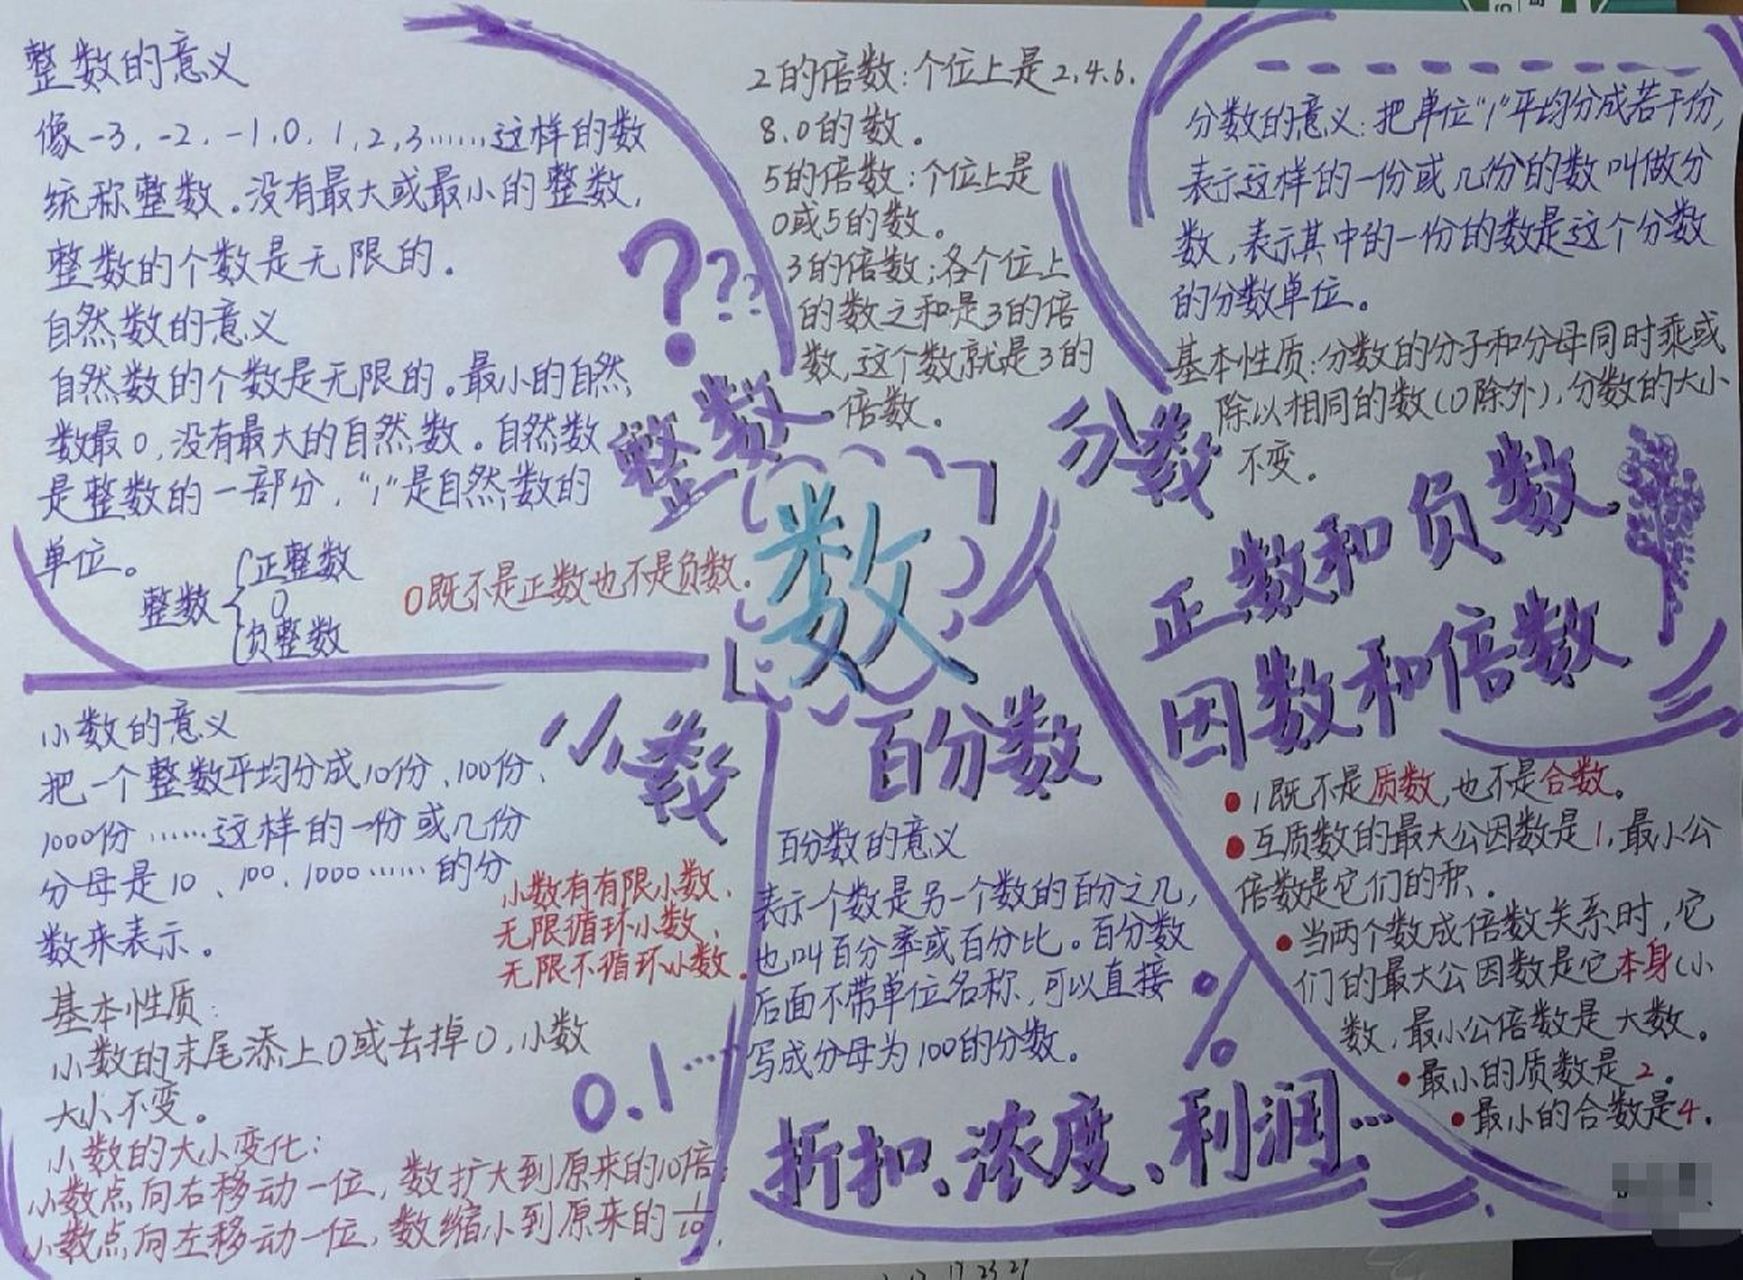 整数的意义
像-3,-2,-1,0,1,2,3……这样的数
统称整数。没有最大或最小的整数,
整数的个数是无限的.
自然数的意义
自然数的个数是无限的。最小的自然
数最0,没有最大的自然数。自然数
是整数的一部分,"1"是自然数的
单位。
整数
正整数
0
负整数
0既不是正数也不是负数.
???
整数
2的倍数:个位上是2.4.6.
8.0的数。
5的倍数:个位上是
0或5的数。
3的倍数;各个位上
的数之和是3的倍
数,这个数就是3的
倍数。
分数的意义:把单位"1"平均分成若干份,
表示这样的一份或几份的数叫做分
数,表示其中的一份的数是这个分数
的分数单位。
基本性质:分数的分子和分母同时乘或
除以相同的数(0除外),分数的大小
不变.
分数
数
正和负数
因数和倍数
小数
小数的意义
把一个整数平均分成10份、100份、
1000份……这样的一份或几份
分母是10、100、1000……的分
数来表示。
小数有有限小数、
无限循环小数、
无限不循环小数.
基本性质:
小数的末尾添上0或去掉0,小数
大小不变。
0.1…
小数的大小变化:
小数点向右移动一位,数扩大到原来的10倍;
小数点向左移动一位,数缩小到原来的1/10.
百分数
百分数的意义
表示一个数是另一个数的百分之几,
也叫百分率或百分比。百分数
后面不带单位名称,可以直接
写成分母为100的分数。
%
折扣、浓度、利润…
1既不是质数,也不是合数。
互质数的最大公因数是1,最小公
倍数是它们的积.
当两个数成倍数关系时,它
们的最大公因数是它本身(小
数,最小公倍数是大数。
最小的质数是2.
最小的合数是4.